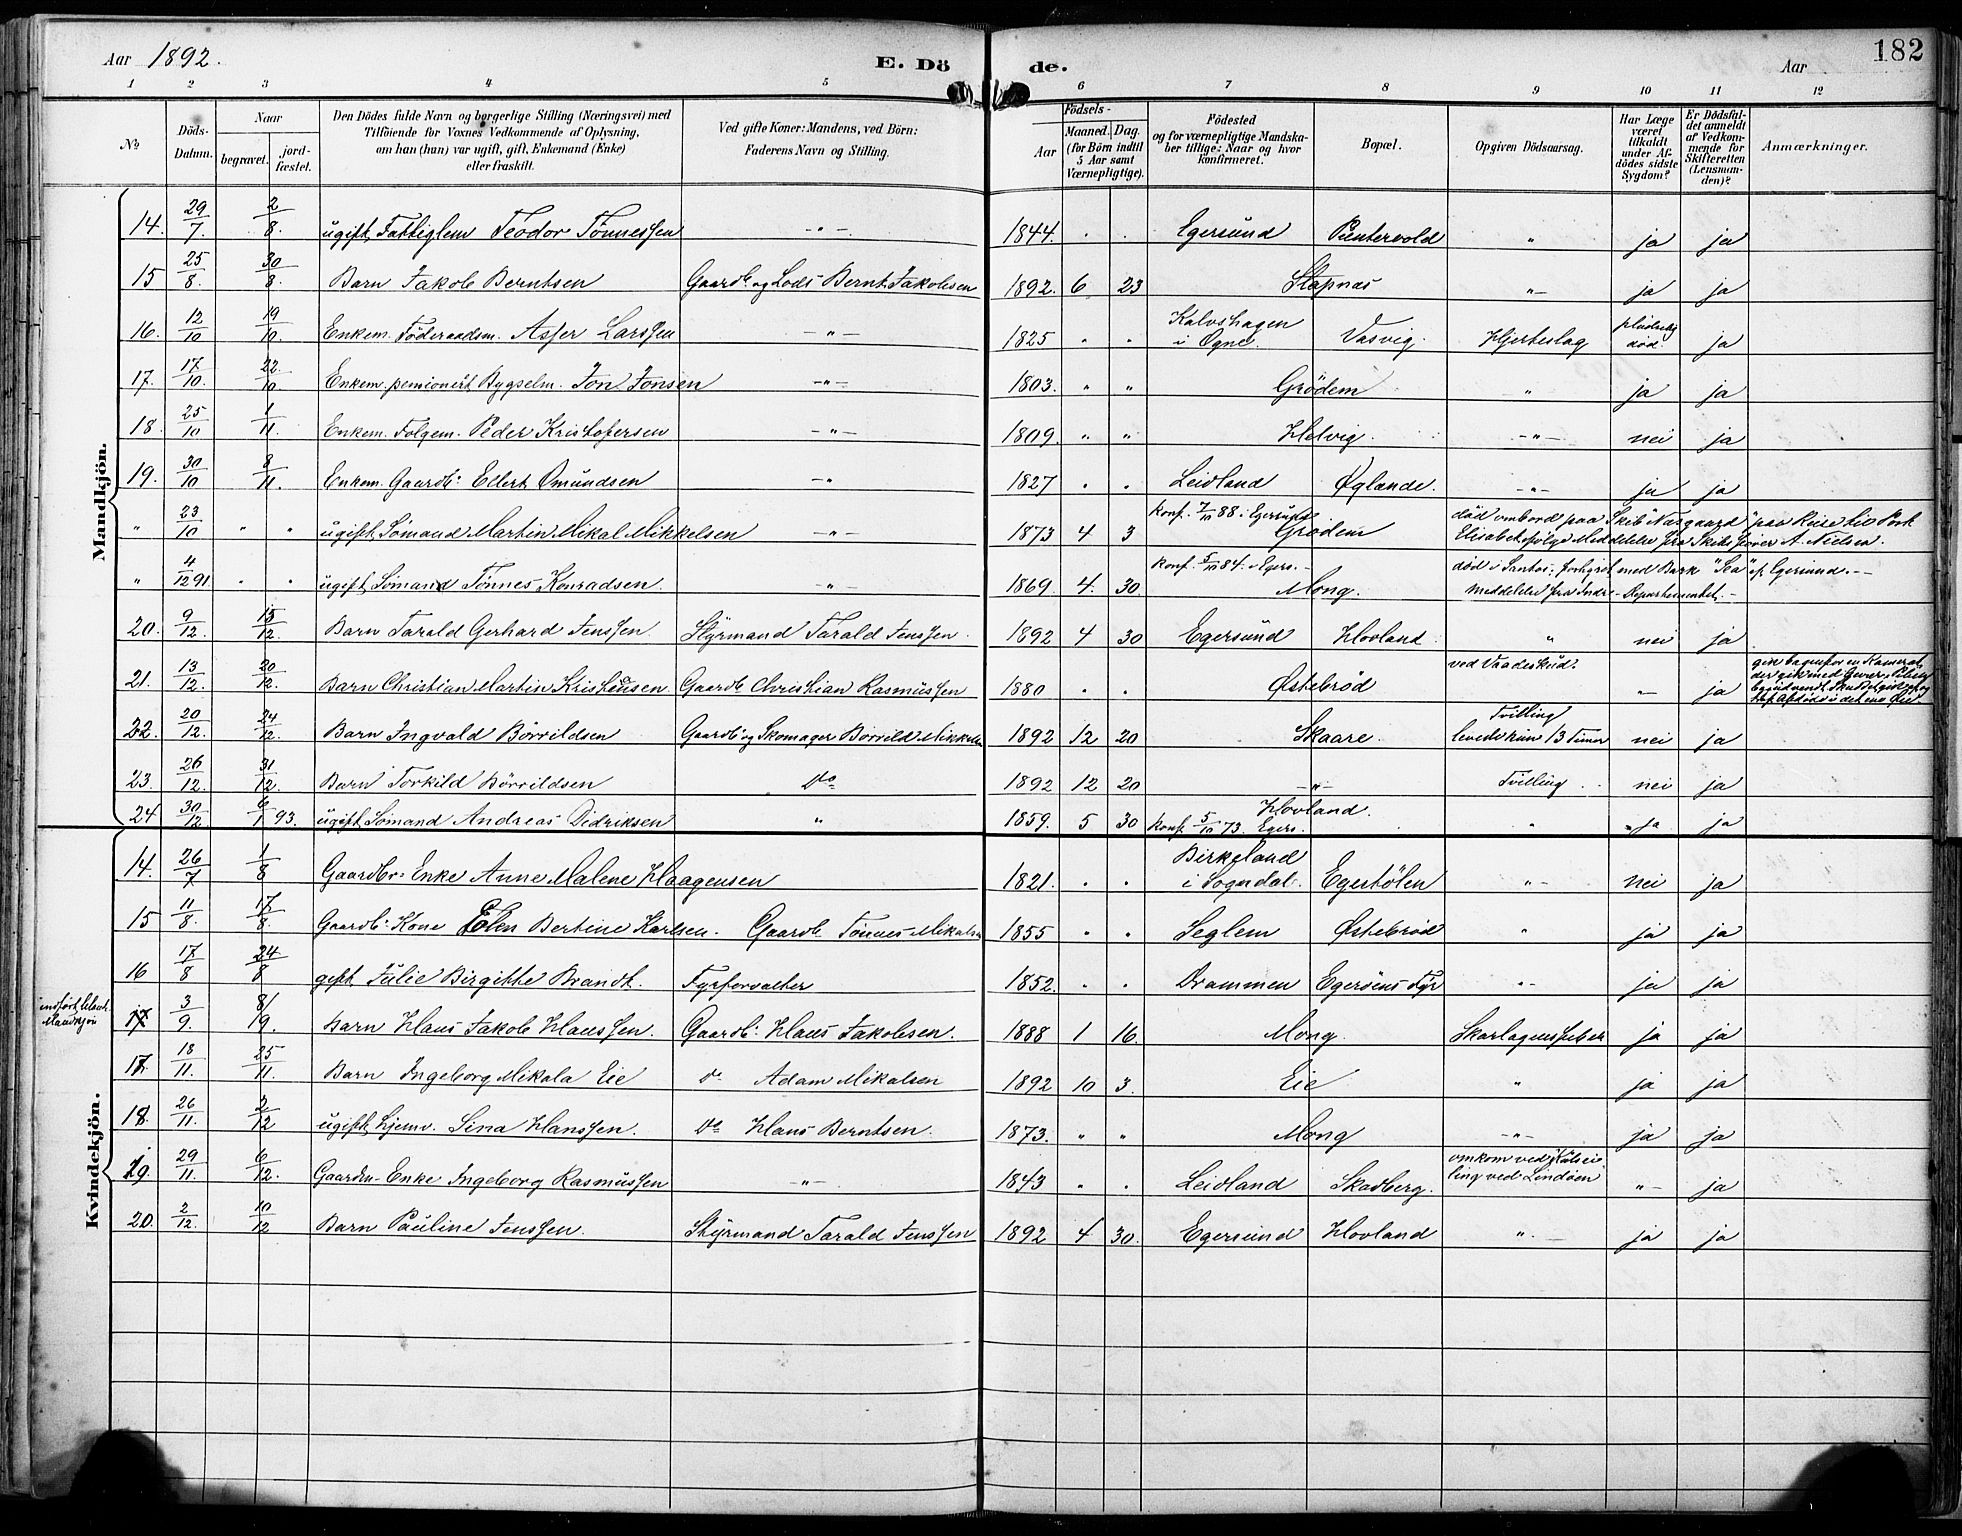 Aar 1892. E. Döde. Aar 182
1 2 3 4 5 6 7 8 9 10 11 12
No Döds-Datum. Naar begravet. jordfæstet. Den Dödes fulde Navn og borgerlige Stilling (Næringsvei) med Tilföiende for Voxnes Vedkommende af Oplysning, om han (hun) var ugift, gift, Enkemand (Enke) eller fraskilt. Ved gifte Koner: Mandens, ved Börn: Faderens Navn og Stilling. Födsels- Aar Maaned. Dag. (for Börn indtil 5 Aar samt Værnepligtige). Födested og for værnepligtige Mandskaber tillige: Naar og hvor konfirmeret. Bopæl. Opgiven Dödsaarsag. Har Læge været tilkaldt under Afdödes sidste Sygdom? Er Dödsfaldet anmeldt af Vedkommende for Skifteretten (Lensmanden)? Anmærkninger.
Mandkjön.
14. 29/7 2/8. ugift Fattiglem Teodor Tönnessen -"- 1844. " " Egersund Puntervold " ja ja
15 25/8. 30/8. Barn Jakob Berntsen Gaardb. og Lods Bernt Jakobsen 1892. 6 23 Stapnæs "- ja ja
16. 12/10 19/10. Enkem. Föderaadsm. Asser Larssen -"- 1825 " " Kalvshagen i Ogne. Vasvig. Hjerteslag pludselig död. ja
17. 17/10. 22/10. Enkem. pensionert Bygselm. Jon Jonsen -"- 1803. " " Grödem " ja ja
18. 25/10 1/11. Enkem. Folgem. Peder Kristofersen -"- 1809. " " Helvig. -"- nei ja
19. 30/10 8/11. Enkem. Gaardb: Ellert Omundsen -"- 1827 " " Leidland Øglænde. -"- ja ja
" 23/10 " " ugift Sömand Martin Mikal Mikkelsen -"- 1873 4 3 konf. 2/10 88 i Egersund Grödem död ombord paa Skib "Næsgaard" paa Reise til Port Elisabet ifølge Meddelelse fra Skibsfører A. Nielsen.
" 4/12 91 " " ugift Sömand Tönnes Konradsen -"- 1869 4. 30 konf. 5/10 84. i Egers.- Mong. död i Santos, forhyret med Bark "Sea" af Egersund.- Meddelelse fra Indre-Departementet.-
20. 9/12. 15/12. Barn Tarald Gerhard Jenssen. Styrmand Tarald Jenssen. 1892 4 30 Egersund Hovland " nei ja
21. 13/12. 20/12. Barn Christian Martin Kristiansen Gaardb. Christian Rasmussen 1880 " " Østebrød ved Vaadeskud. "- ja gik bagenfor en Kamerat, der gik med Gevær
22. 20/12. 24/12. Barn Ingvald Börrildsen Gaardb: og Skomager Börrild Mikkelsen 1892 12 20 Skaare. Tvilling levede kun 13 Timer nei ja
23. 26/12. 31/12. Barn Torkild Börrildsen Do 1892 12 20 -"- Tvilling nei ja
24 30/12. 6/1 93. ugift Sömand Andreas Didriksen " 1859. 5 30 Hovland. konf. 5/10 73. Egers. " "ja ja
Kvindekjön.
14. 26/7 1/8 Gaardbr: Enke Anne Malene Haagensen 1821. " " Birkeland i Sogndal. Egestölen "- nei ja
15 11/8. 17/8. Gaardb: Kone Elen Bertine Karlsen. Gaardb. Tönnes Mikalsen 1855 " " Seglem Østebrød " ja ja
16 17/8 24/8 gift Julie Birgitte Brandt. Fyrforvalter 1852. " " Drammen Egerøens Fyr "- ja ja
indført blant Mandkjön 17 3/9. 8/9. Barn Hans Jakob Hanssen. Gaardb: Hans Jakobsen. 1888 1 16 Mong. Skarlagensfeber ja ja
17. 18/11. 25/11. Barn Ingeborg Mikala Eie do Adam Mikalsen 1892 10 3. Eie " ja ja
18. 26/11. 2/12 ugift hjemv. Sina Hanssen. Do Hans Berntsen. 1873. " " Mong -"- ja ja
19. 29/11. 6/12. Gaardm- Enke Ingeborg Rasmussen -"- 1843 " " Leidland Skadberg. omkom ved Kulseiling ved Lindöen "- ja
20. 2/12. 10/12 Barn Pauline Jenssen. Styrmand Tarald Jenssen 1892 4 30. Egersund Hovland ". - ja ja